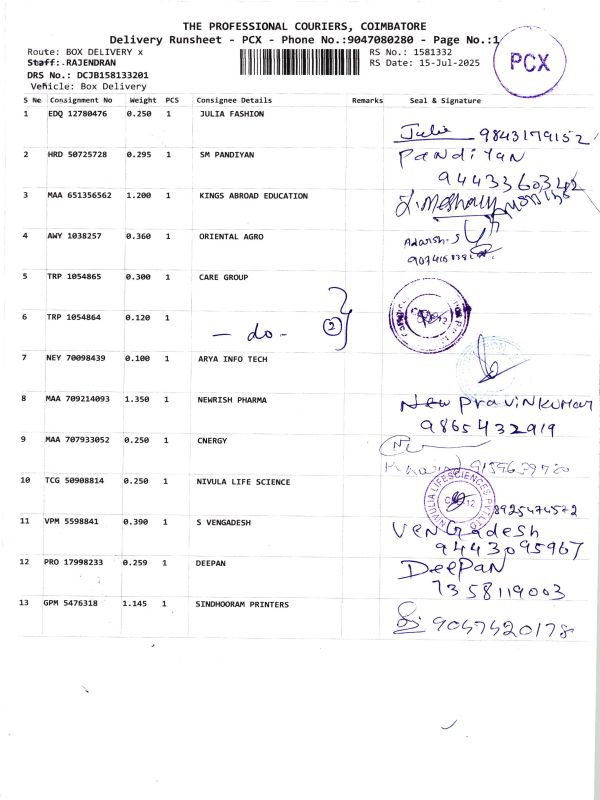 THE PROFESSIONAL COURIERS, COIMBATORE
Delivery Runsheet - PCX - Phone No.:9047080280 - Page No.:1
PCX
Route: BOX DELIVERY x RS No.: 1581332
Staff: RAJENDRAN RS Date: 15-Jul-2025
DRS No.: DCJB158133201
Vehicle: Box Delivery
S No Consignment No Weight PCS Consignee Details Remarks Seal & Signature
1 EDQ 12780476 0.250 1 JULIA FASHION
Julie 9843179152
2 HRD 50725728 0.295 1 SM PANDIYAN PANDIYAN
9443360342
3 MAA 651356562 1.200 1 KINGS ABROAD EDUCATION
4 AWY 1038257 0.360 1 ORIENTAL AGRO Adarsh.S
5 TRP 1054865 0.300 1 CARE GROUP
6 TRP 1054864 0.120 1
- do - 2
7 NEY 70098439 0.100 1 ARYA INFO TECH
8 MAA 709214093 1.350 1 NEWRISH PHARMA New PravinKumar
9865432919
9 MAA 707933052 0.250 1 CNERGY
9159639780
10 TCG 50908814 0.250 1 NIVULA LIFE SCIENCE
NIVULIA LIFESCIENCES PVT LTD
8925474572
11 VPM 5598841 0.390 1 S VENGADESH VENGADESH
9443095967
12 PRO 17998233 0.259 1 DEEPAN DEEPAN
7358119003
13 GPM 5476318 1.145 1 SINDHOORAM PRINTERS
9047420178